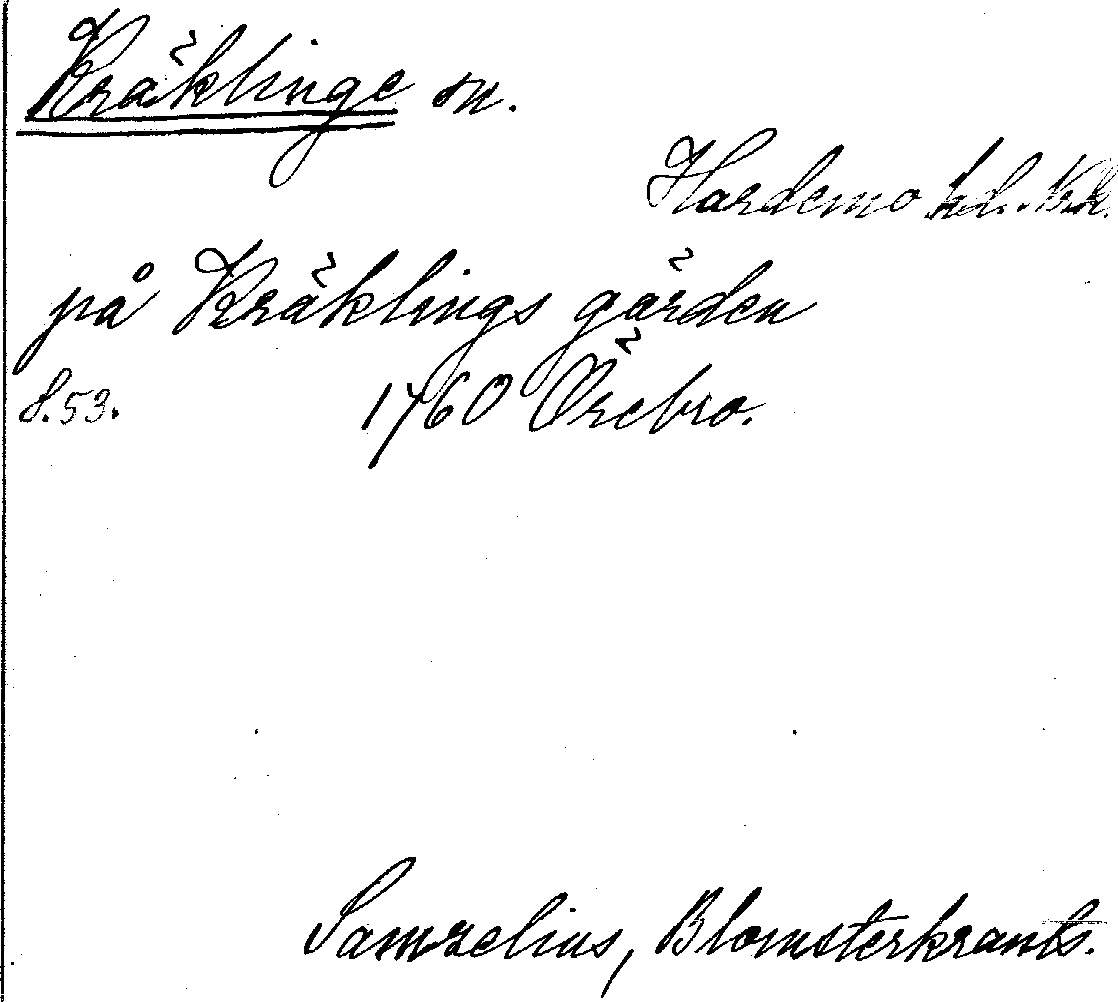 Kräklinge sn.
Hardemo hd. Nrk.
på Kräklings gärden
s. 53. 1760 Örebro.
Samzelius, Blomsterkrants.